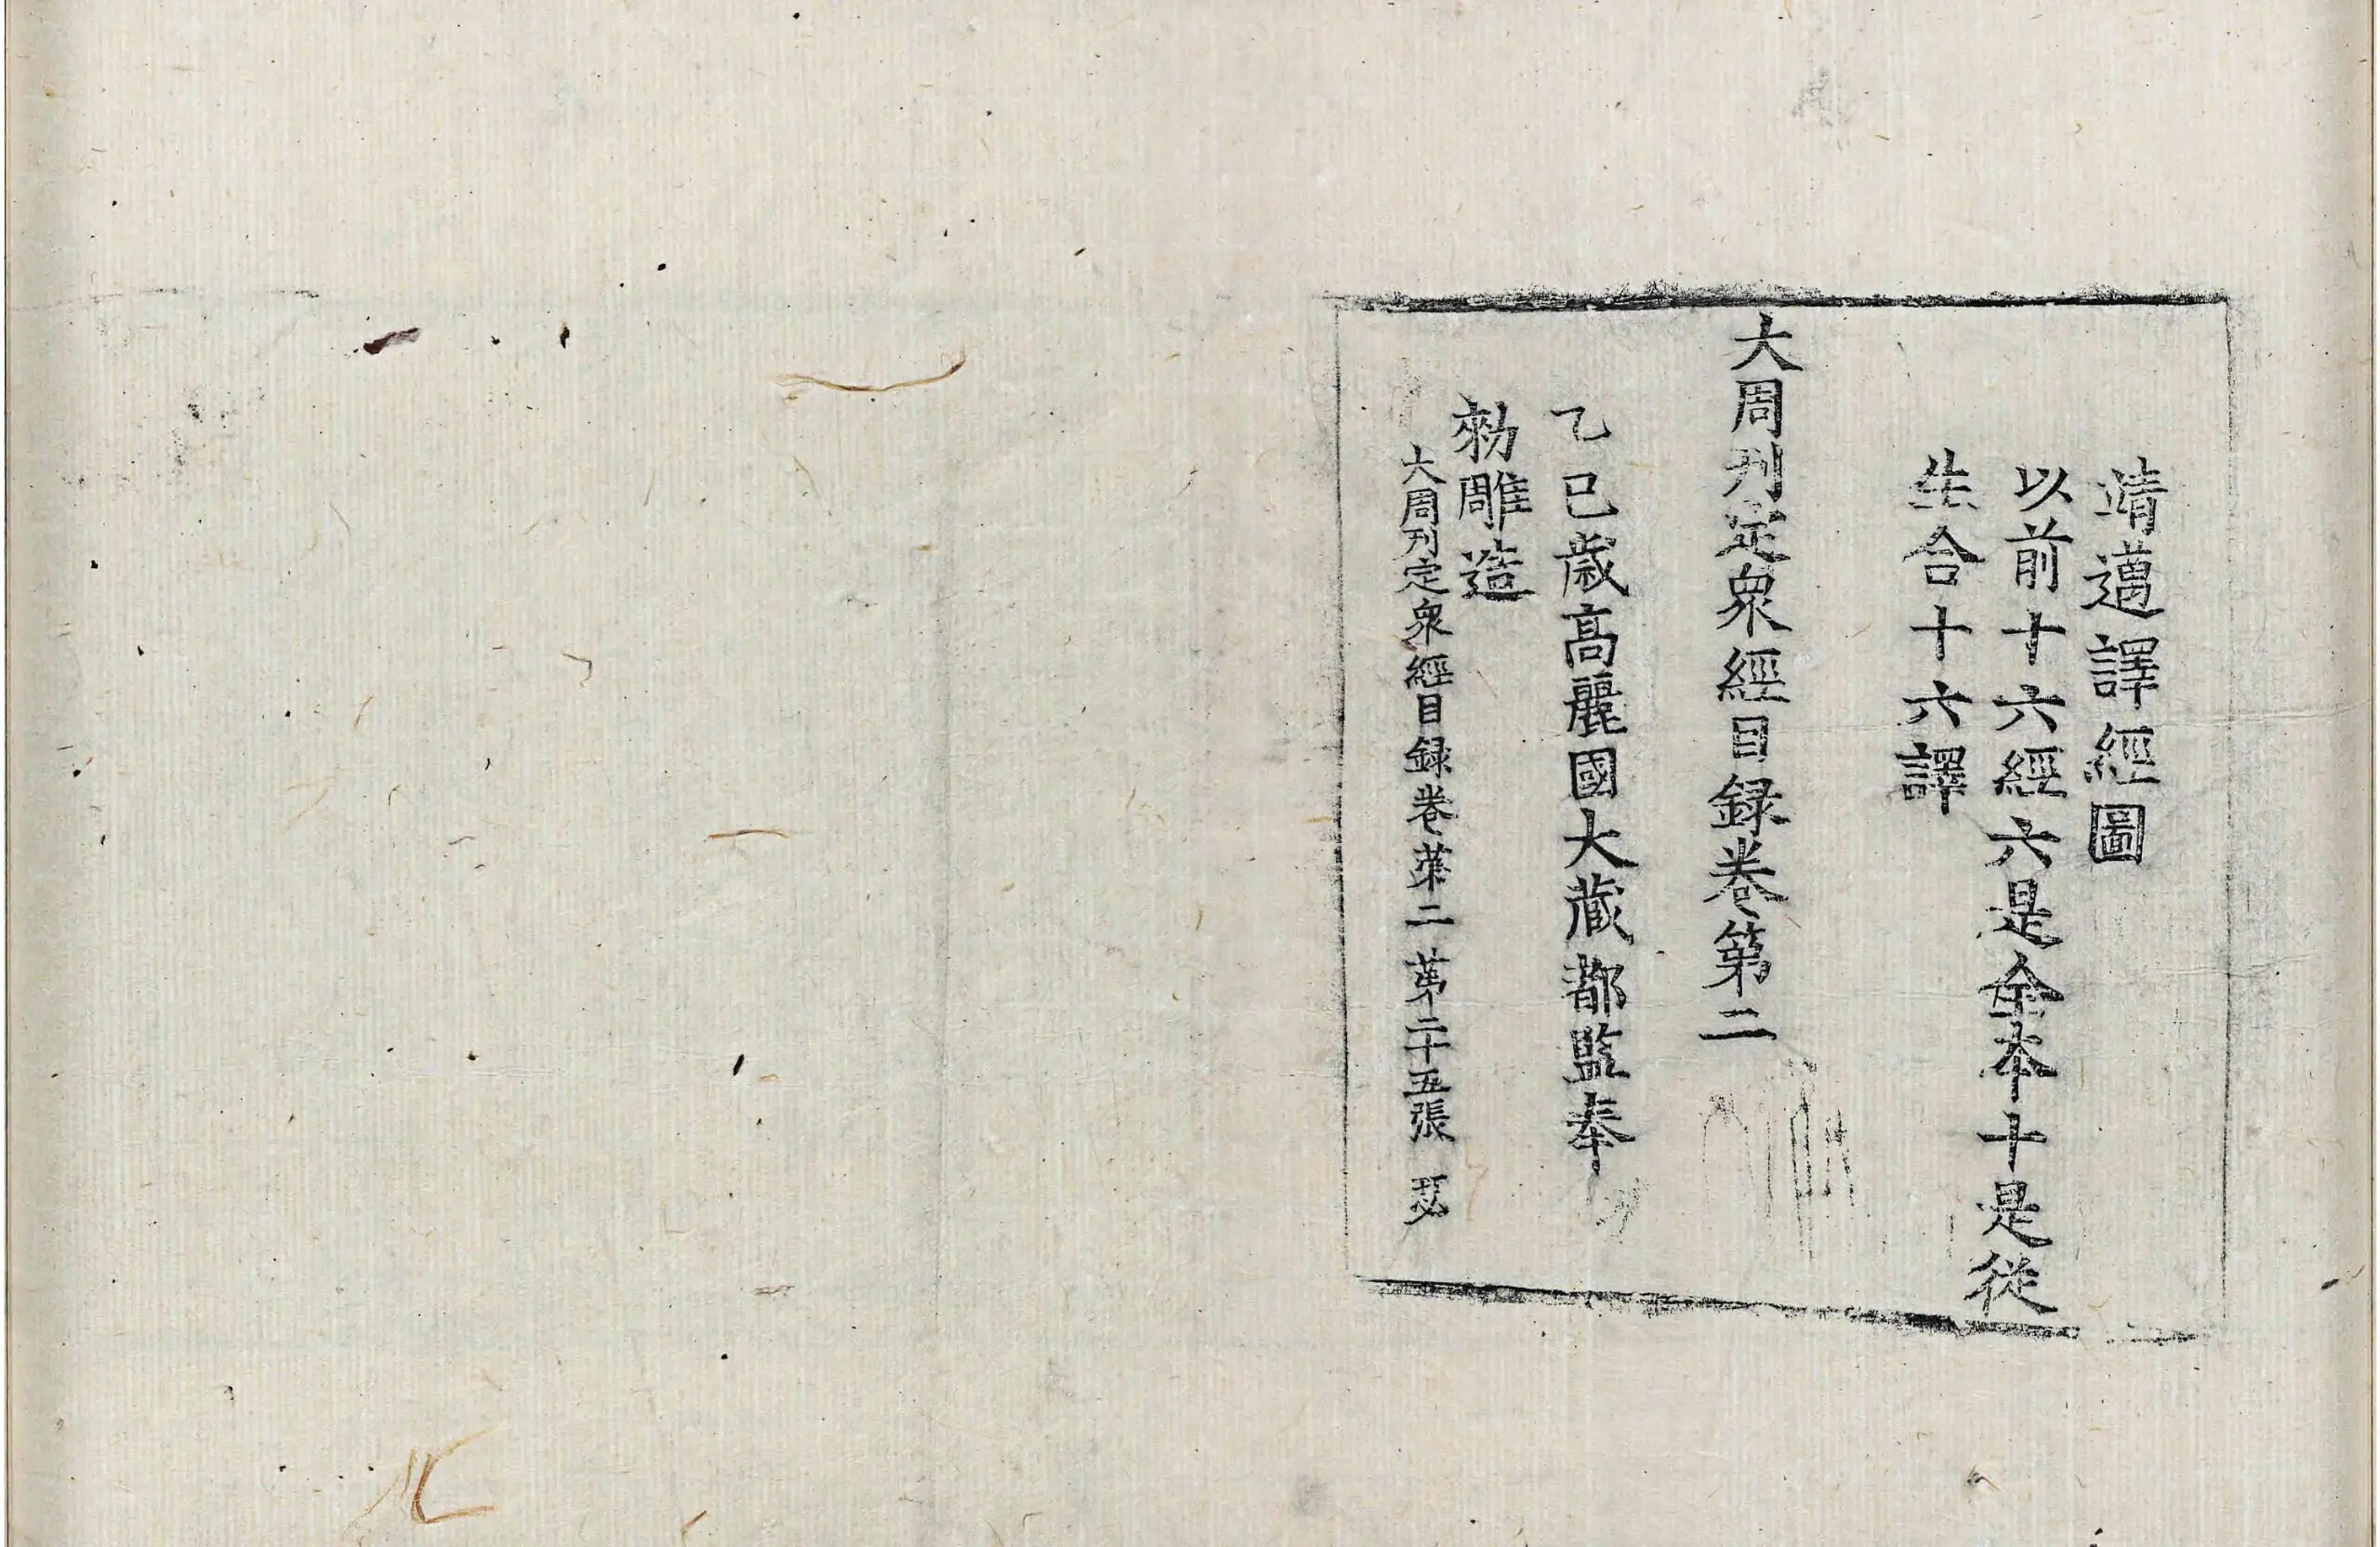 靖邁譯經圖
以前十六經六是全本十是從
生合十六譯
大周刊定衆經目録卷第二
乙巳歳高麗國大藏都監奉
勑雕造
大周刊定衆經目録卷第二 第二十五張 瑟